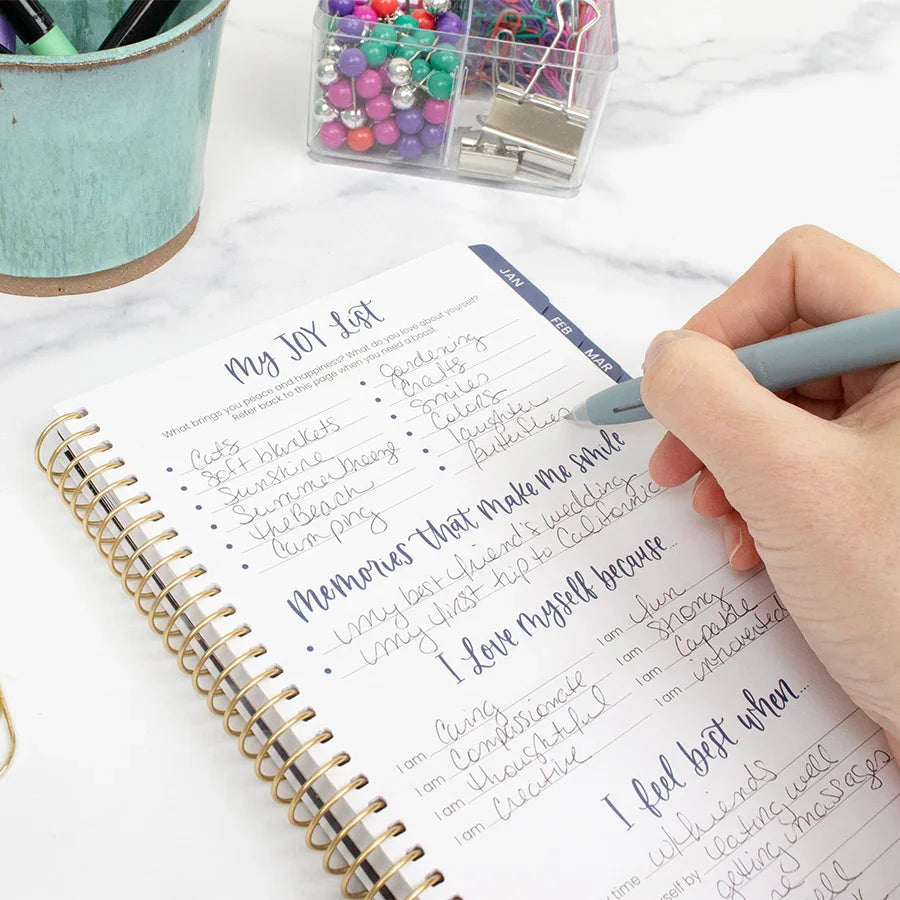 JAN
FEB
MAR
My JOY List
What brings you peace and happiness? What do you love about yourself?
Refer back to this page when you need a boost.
Cats
Soft blankets
Sunshine
Summer
The Beach
Camping
Gardening
Crafts
Smiles
Colors
laughter
butterflies
Memories that make me smile
my best friend's wedding
my first trip to California
I love myself because...
I am caring
I am compassionate
I am thoughtful
I am creative
I am fun
I am strong
I am capable
I am introverted
I feel best when...
time w/friends
eating well
getting massages